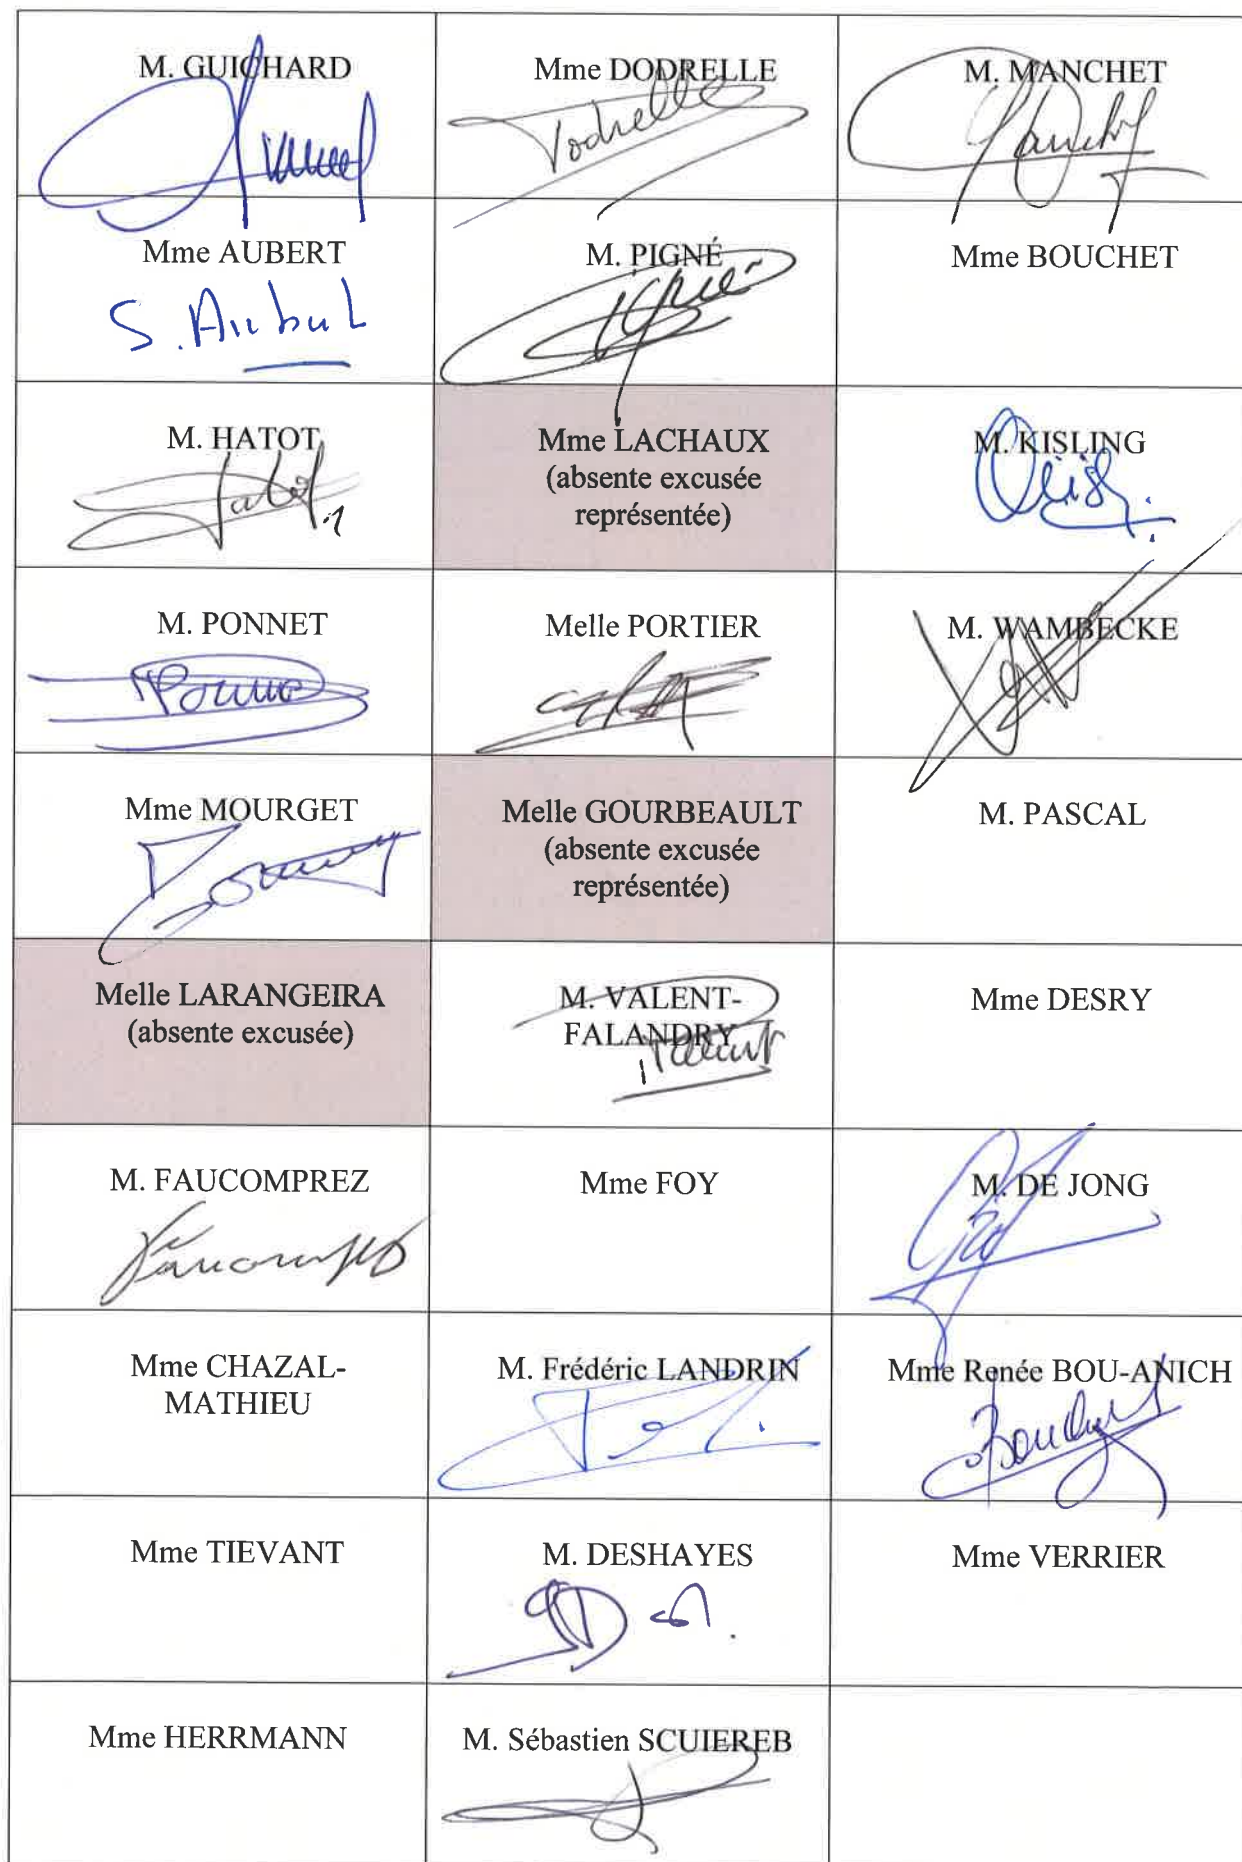 M. GUICHARD
Mme DODRELLE
Dodrelle
M. MANCHET
Manchet
Mme AUBERT
S. Aubert
M. PIGNÉ
Mme BOUCHET
M. HATOT
Hatot
Mme LACHAUX
(absente excusée
représentée)
M. KISLING
M. PONNET
Melle PORTIER
M. WAMBECKE
Mme MOURGET
Melle GOURBEAULT
(absente excusée
représentée)
M. PASCAL
Melle LARANGEIRA
(absente excusée)
M. VALENT-
FALANDRY
Mme DESRY
M. FAUCOMPREZ
Faucomprez
Mme FOY
M. DE JONG
Mme CHAZAL-
MATHIEU
M. Frédéric LANDRIN
Mme Renée BOU-ANICH
Mme TIEVANT
M. DESHAYES
Mme VERRIER
Mme HERRMANN
M. Sébastien SCUIEREB